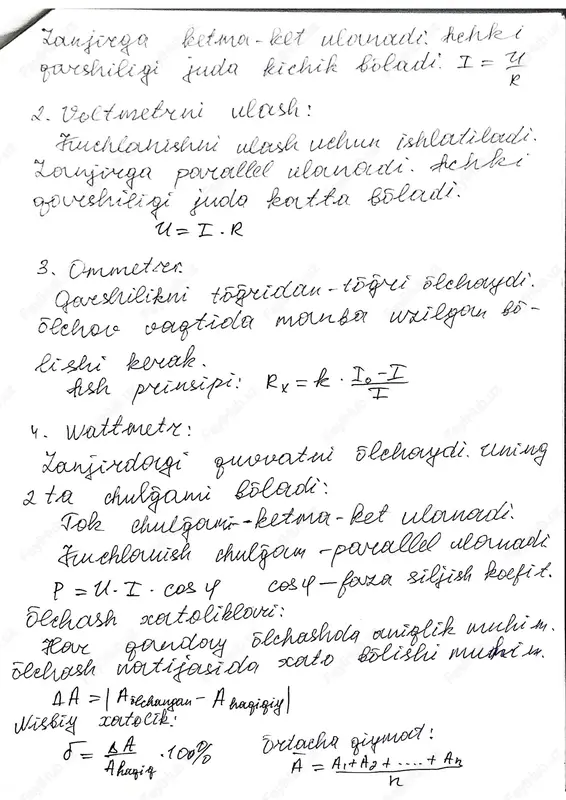 Zanjirga ketma-ket ulanadi. Ichki
qarshiligi juda kichik bo̅ladi. I = U/R
2. Voltmetrni ulash:
Kuchlanishni ulash uchun ishlatiladi.
Zanjirga parallel ulanadi. Ichki
qarshiligi juda katta bo̅ladi.
U = I · R
3. Ommetr
Qarshilikni to̅g̅ridan-to̅g̅ri o̅lchaydi.
o̅lchov vaqtida manba uzilgan bo̅-
lishi kerak.
Ish prinsipi: Rx = k · (I₀ - I)/I
4. Wattmetr:
Zanjirdagi quvvatni o̅lchaydi. Uning
2 ta chulg̅ami bo̅ladi:
Tok chulg̅ami - ketma-ket ulanadi.
Kuchlanish chulg̅am - parallel ulanadi
P = U · I · cos φ cos φ – faza siljish koefit.
O̅lchash xatoliklari:
Har qanday o̅lchashda aniqlik muhim.
O̅lchash natijasida xato bo̅lishi mumkin.
ΔA = |A o̅lchangan - A haqiqiy|
Nisbiy xatolik:
δ = ΔA/A haqiq · 100% O̅rtacha qiymat:
Ā = (A₁ + A₂ + .... + Aₙ)/n